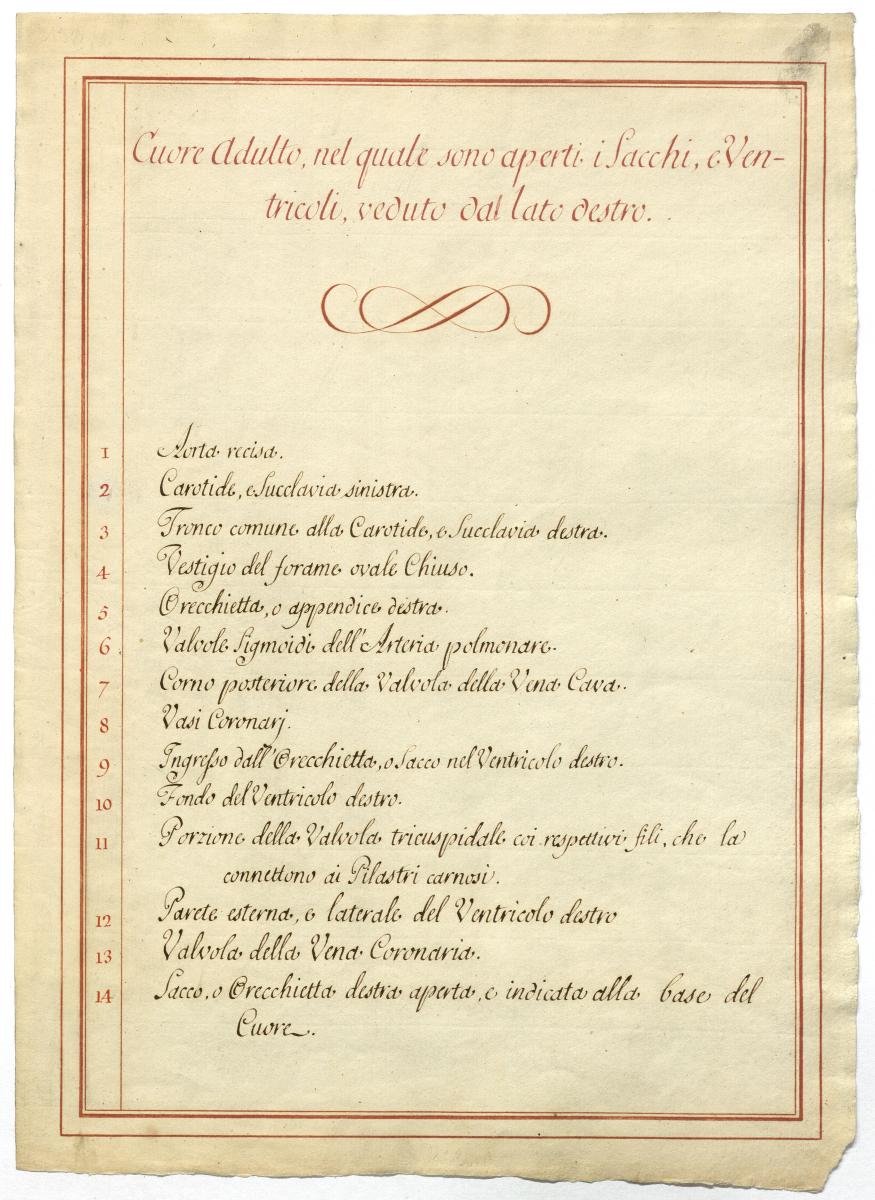 Cuore Adulto, nel quale sono aperti i Sacchi, e Ven-
tricoli, veduto dal lato destro.
1 Aorta recisa.
2 Carotide, e Succlavia sinistra.
3 Tronco comune alla Carotide, e Succlavia destra.
4 Vestigio del forame ovale Chiuso.
5 Orecchietta, o appendice destra.
6 Valvole Sigmoidi dell'Arteria polmonare.
7 Corno posteriore della Valvola della Vena Cava.
8 Vasi Coronarj.
9 Ingresso dall'Orecchietta, o Sacco nel Ventricolo destro.
10 Fondo del Ventricolo destro.
11 Porzione della Valvola tricuspidale coi respettivi fili, che la
connettono ai Pilastri carnosi.
12 Parete esterna, e laterale del Ventricolo destro
13 Valvola della Vena Coronaria.
14 Sacco, o Orecchietta destra aperta, e indicata alla base del
Cuore.